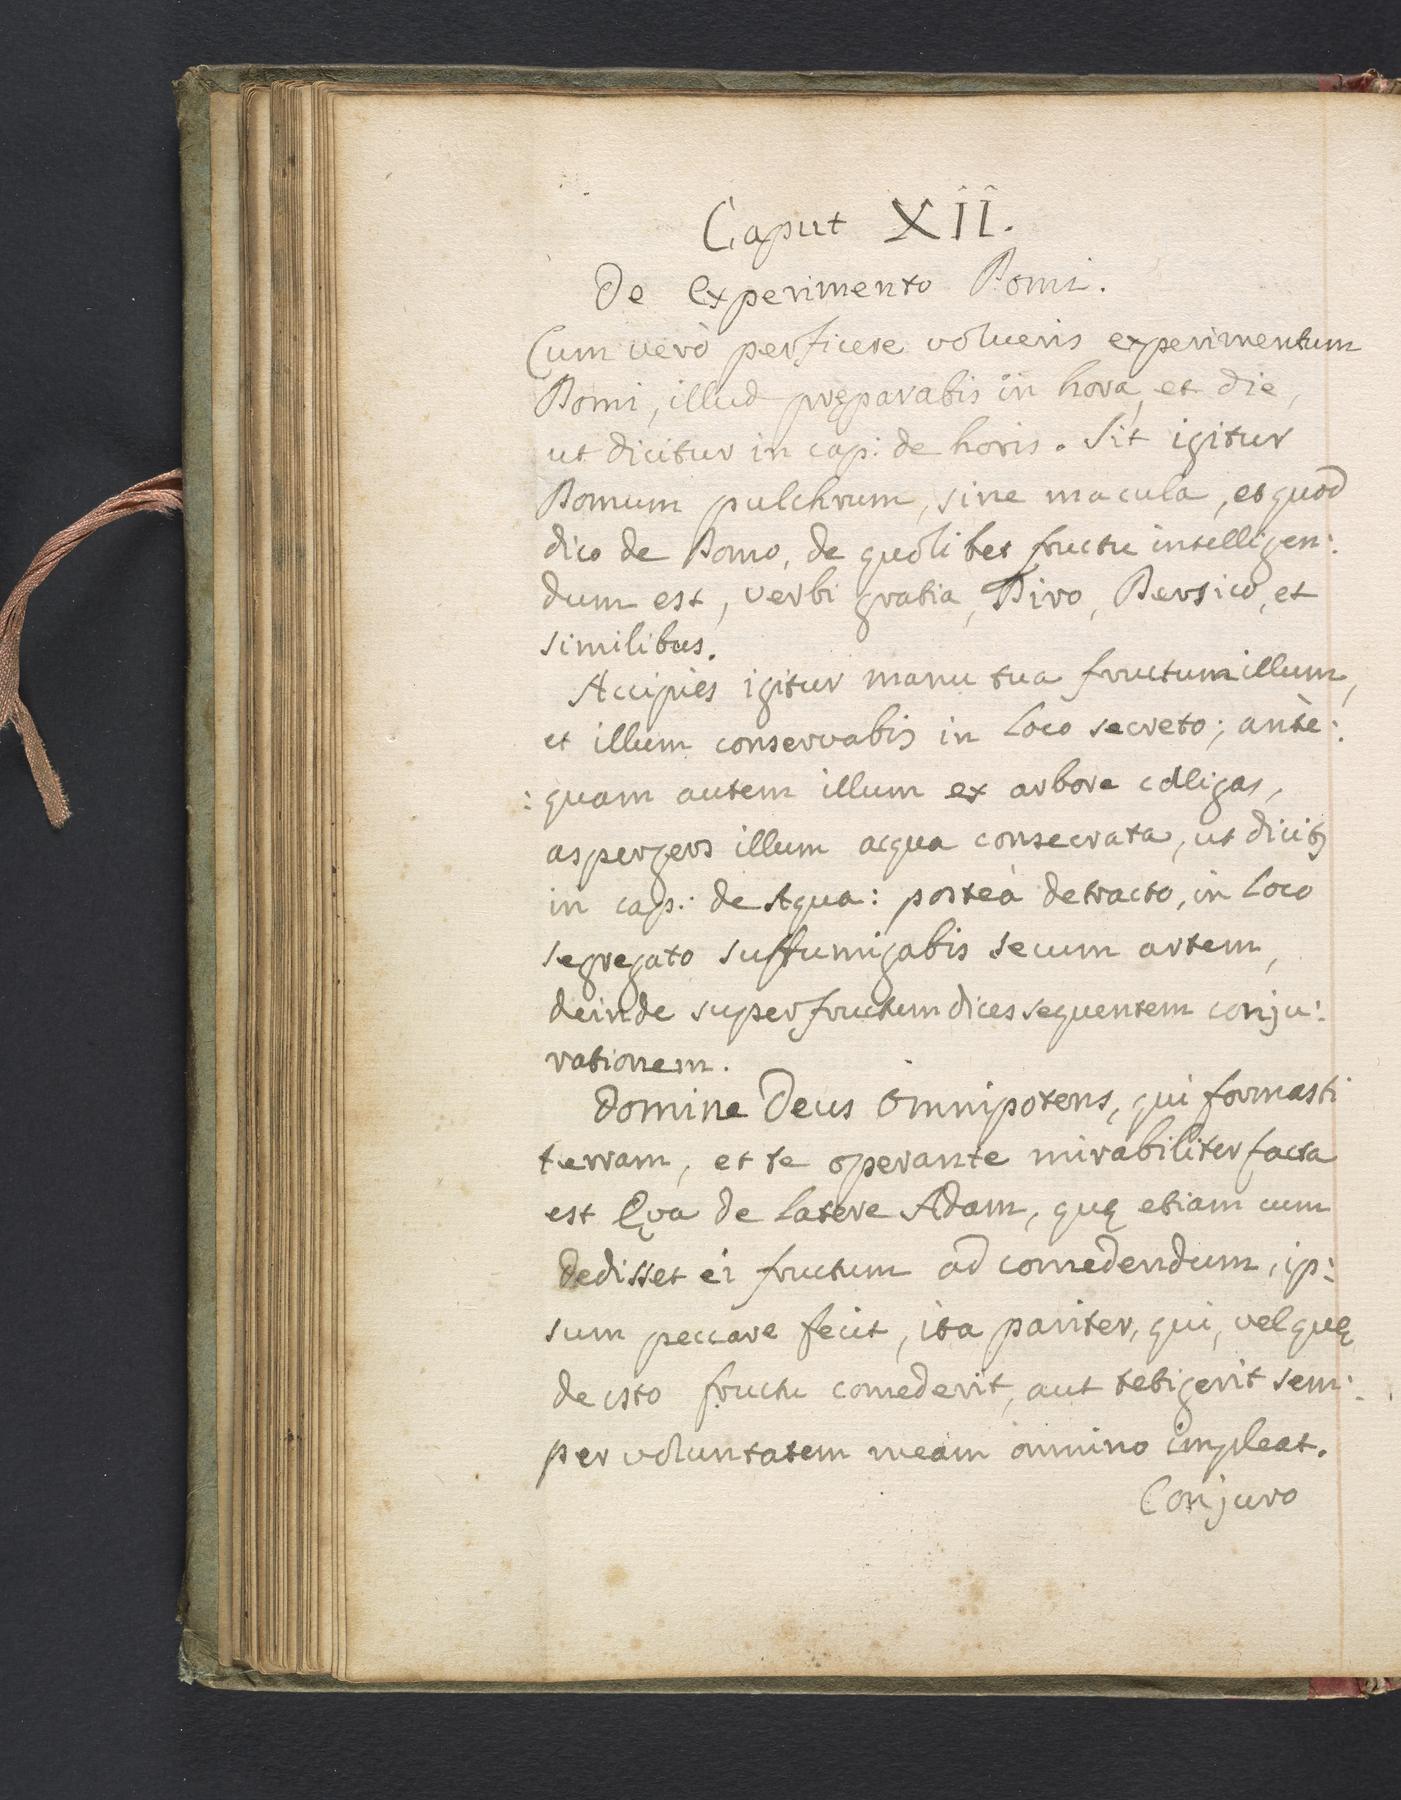 Caput XII.
De experimento Pomi.
Cum verò perficere volueris experimentum
Pomi, illud pręparabis in hora, et die,
ut dicitur in cap: de horis. Sit igitur
Pomum pulchrum, sine macula, et quod
dico de Pomo, de quolibet fructu intelligen:
dum est, verbi gratia, Piro, Persico, et
similibus.
Accipies igitur manu tua fructum illum,
et illum conservabis in loco secreto; antè:
:quam autem illum ex arbore colligas,
aspergers illum acqua consecrata, ut dicitʒ
in cap: de Aqua: posteà detracto, in loco
segregato suffumigabis secum artem,
deinde super fructum dices sequentem conju:
rationem.
Domine Deus Omnipotens, qui formasti
terram, et te operante mirabiliter facta
est Eva de latere Adam, quę etiam cum
dedisset ei fructum ad comedendum, ip:
sum peccare fecit, ita pariter, qui, vel quę
de isto fructu comederit, aut tetigerit sem:
per voluntatem meam omnino impleat.
Conjuro